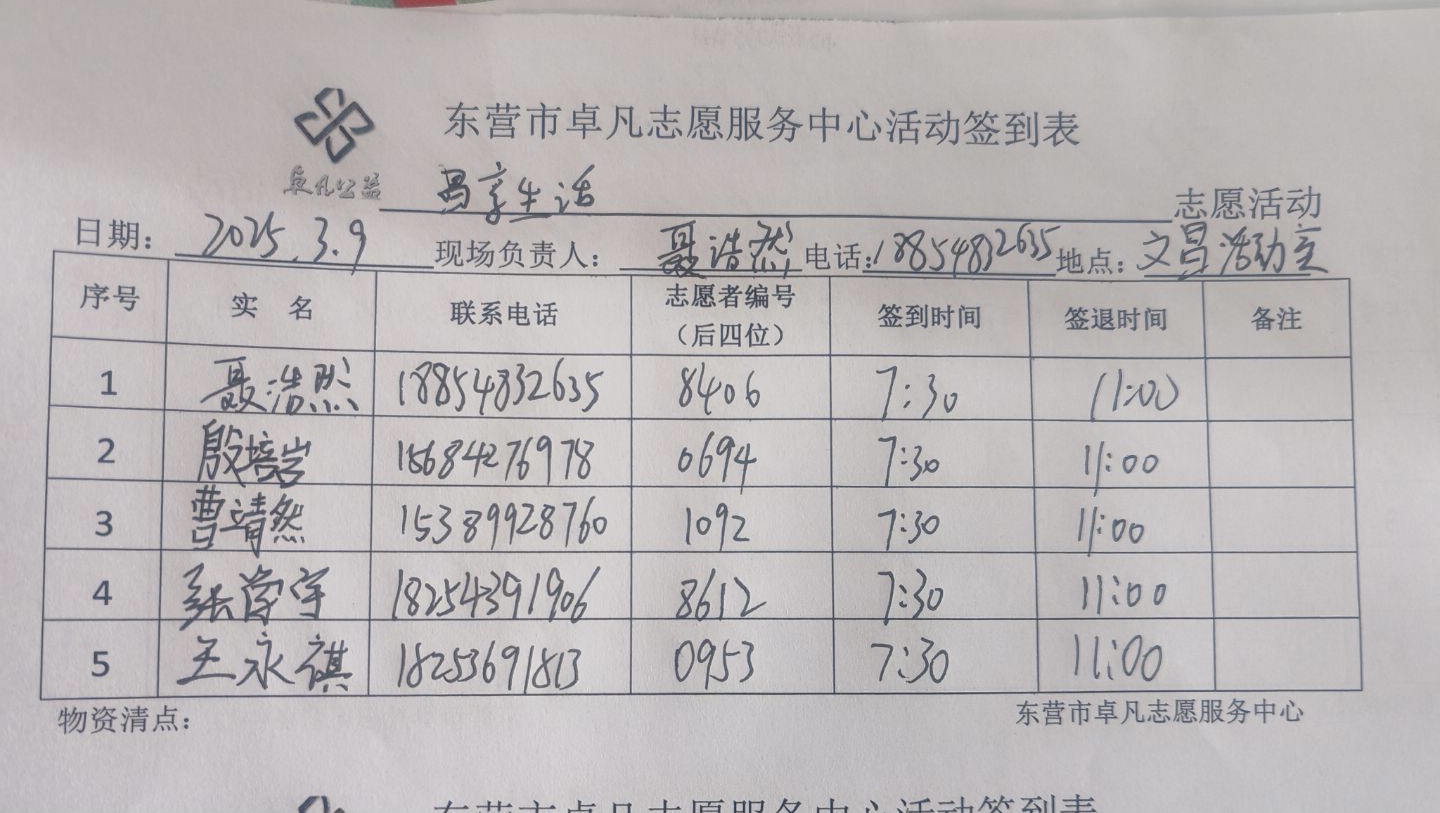 东营市卓凡志愿服务中心活动签到表
卓凡公益 昌享生活 志愿活动
日期: 2025.3.9 现场负责人: 聂浩然 电话: 18854832635 地点: 文昌活动室
序号 实 名 联系电话 志愿者编号（后四位） 签到时间 签退时间 备注
1 聂浩然 18854832635 8406 7:30 11:00
2 殷培岩 15684276978 0694 7:30 11:00
3 曹靖然 15389928760 1092 7:30 11:00
4 张学宇 18254391906 8612 7:30 11:00
5 王永祺 18253691813 0953 7:30 11:00
物资清点: 东营市卓凡志愿服务中心
东营市卓凡志愿服务中心活动签到表